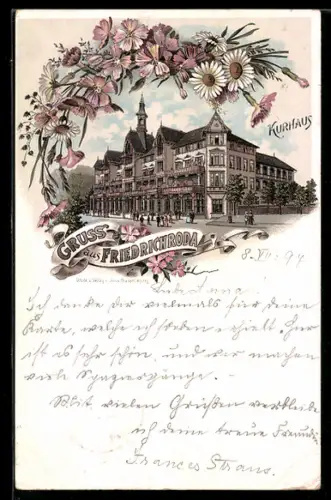 KURHAUS
GRUSS
aus FRIEDRICHRODA
8. VII. 97
Liebe Anna
Ich danke dir vielmals für deine
Karte, welche ich soeben erhielt. Hier
ist es sehr schön, und wir machen
viele Spaziergänge.
Mit vielen Grüßen verbleibe
ich deine treue Freundin
Frances Straus.